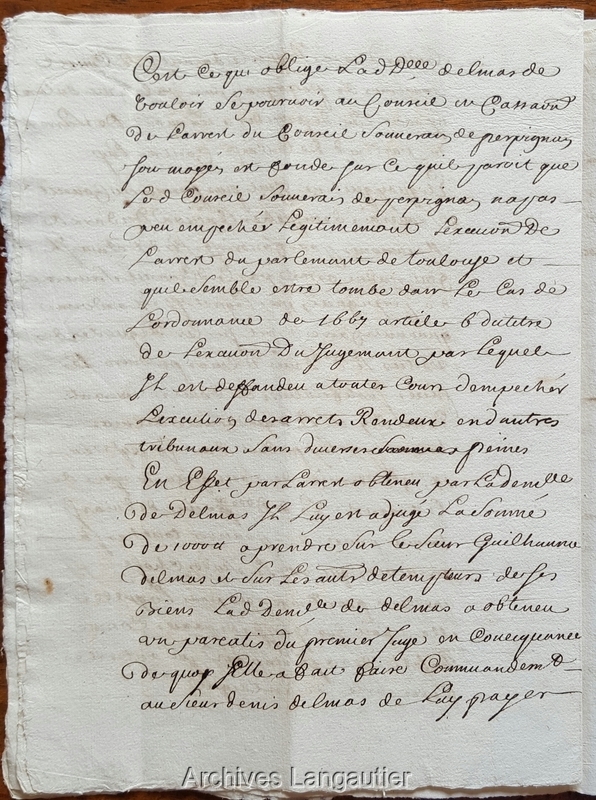 C'est ce qui oblige Lad Delle delmas de
vouloir se pourvoir au Conseil en Cassaon
de Larrest du Conseil Souverain de perpignan
son moyen est fonde sur ce quil paroit que
Led Conseil Souverain de perpignan na pas
peu empecher Legitimemant Lexauon De
Larrest du parlemant de toulouse et
quil semble entre tombe dans Le Cas de
Lordonnance de 1667 article 6 du titre
de Lexauon Du Jugemant par Lequel
Jl est deffandeu a toutes Cours dempecher
Lexecution des arrets Rendeux en dautres
tribunaux sans diverses peines
En Effet par Larrest obteneu par Lademlle
de Delmas Jl Luy est adjuge La Somme
de 1000 a prendre sur le sieur Guilhaume
delmas et sur Les autr detempteurs de ses
biens Lad Demlle de delmas a obteneu
un pareatis du premier Juge en Coucequance
de quoy Elle a fait faire Commandemt
au sieur denis delmas de Luy payer
Archives Langautier